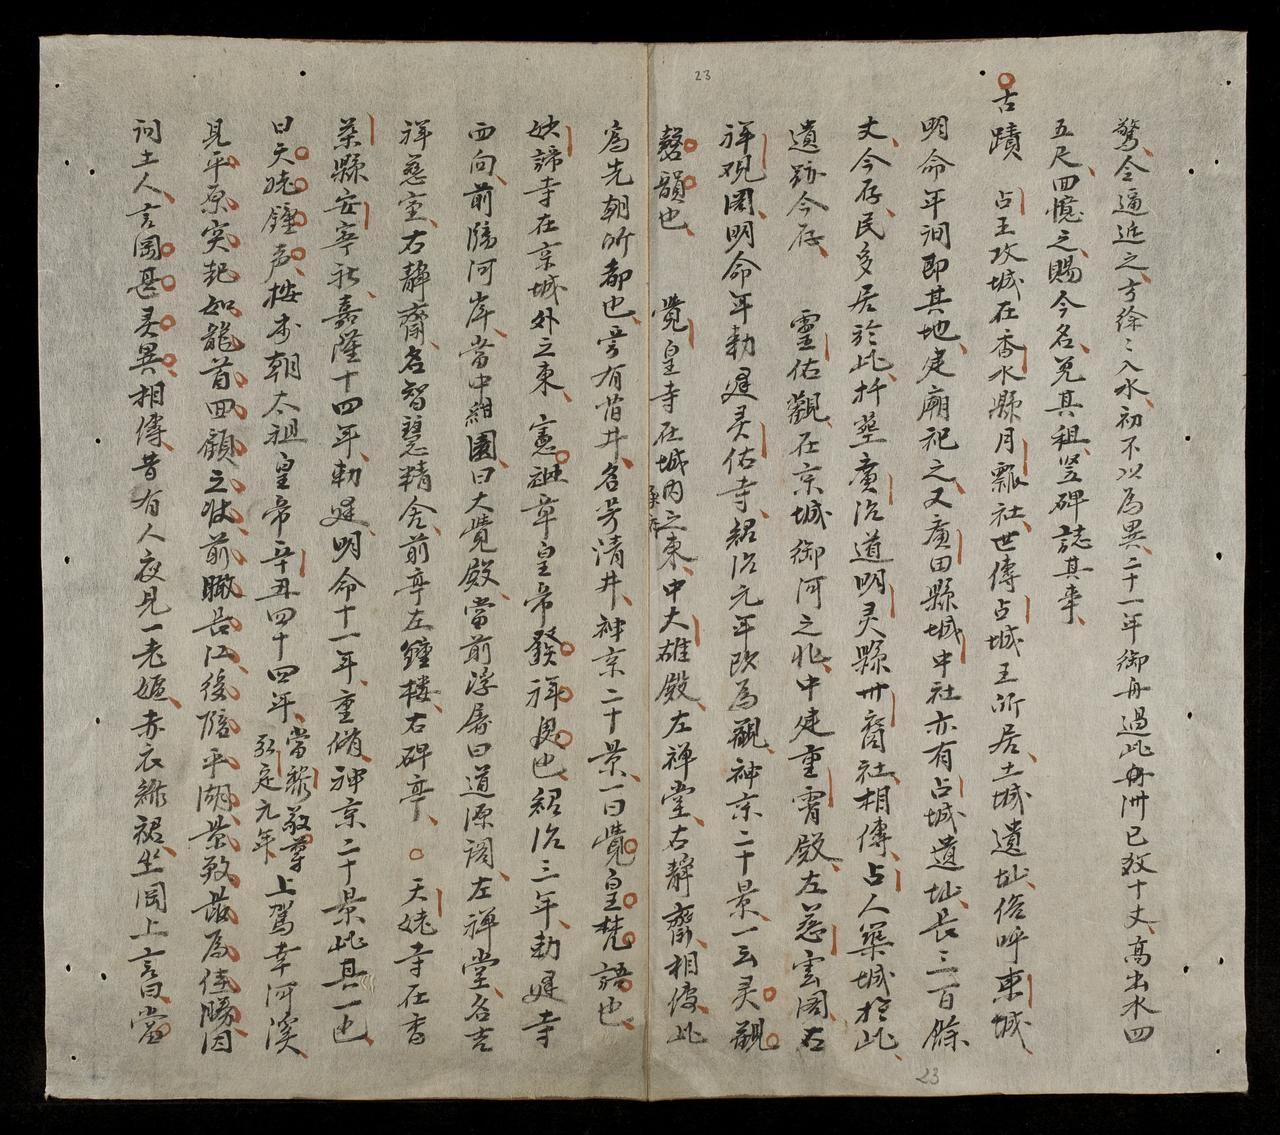 23
驚令逼近之方徐〻入水初不以為異二十一年御舟過此舟洲已数十丈高出水四
五尺四憶之賜今名免其祖竖碑誌其事
古蹟 占王攻城在香水縣月瓢社世傳占城王所居土城遺址俗呼東城
明命年洞即其地建廟祀之又廣田縣城中社亦有占城遺址長三百餘
丈今存民多居於此扦壘廣治道明灵縣卅裔社相傳占人築城於此
遺跡今存 靈佑觀在京城御河之北中建重霄殿左慈雲阁右
祥观阁明命年勅建灵佑寺紹治元年改為觀神京二十景一云灵觀
磬韻也 覺皇寺在城内之東中大雄殿左禅堂右靜齋相傳此
為先朝所都也旁有昔井名芳清井神京二十景一曰覺皇梵語也
妙諦寺在京城外之東憲祖章皇帝發祥奥也紹治三年勅建寺
西向前臨河岸當中紺園曰大覺殿當前浮屠曰道源阁左禅堂名吉
祥慈室右靜齋名智慧精舍前亭左鐘楼右碑亭 天姥寺在香
茶縣安寧社嘉隆十四年勅建明命十一年重脩神京二十景此其一也
曰天姥鐘声按本朝太祖皇帝辛丑四十四年當黎敬尊弘定元年上駕幸河溪
見平原突起如龍首回顧之状前瞰长江後臨平湖景致最為佳勝因
问土人言岡甚灵異相傳昔有人夜見一老嫗赤衣綠裙坐岡上言曰當
23